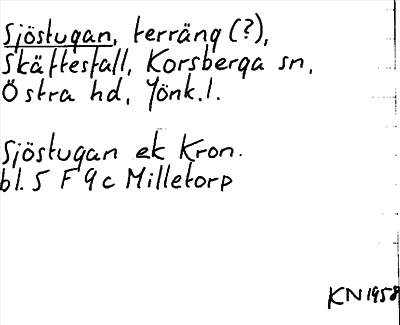 Sjöstugan, terräng (?),
Skättestall, Korsberga sn,
Östra hd, Jönk.l.
Sjöstugan ek Kron.
bl. 5 F 9 c Milletorp
KN 1958